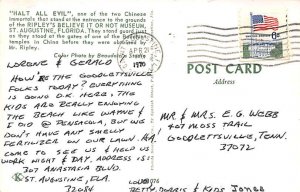 "HALT ALL EVIL", one of the two Chinese
immortals that stand at the entrance to the grounds
of the RIPLEY'S BELIEVE IT OR NOT MUSEUM,
ST. AUGUSTINE, FLORIDA. They stand guard
just as they stood at the gates of one of the
temples in China before they were obtained by
Mr. Ripley.
Color Photo by Beaudoin's Studio
LORENE & GERALD
HOW'S THE GOODLETTSVILLE
FOLKS TODAY? EVERYTHING
IS GOING OK HERE. THE
KIDS ARE REALLY ENJOYING
THE BEACH LIKE WAYNE &
I DID @ PENSACOLA, BUT WE
DON'T HAVE ANY SMELLY
FERTILIZER ON OUR LAWN. HA!
COME TO SEE US & HELP US
WORK NIGHT & DAY. ADDRESS IS
307 ANASTASIA BLVD.
ST. AUGUSTINE, FLA.
32084
APR 21
1970
6c
POST CARD
Address
MR & MRS E. G. WEBB
407 MOSS TRAIL
GOODLETTSVILLE, TENN.
37072
BETTY, DORRIS & KIDS JONES